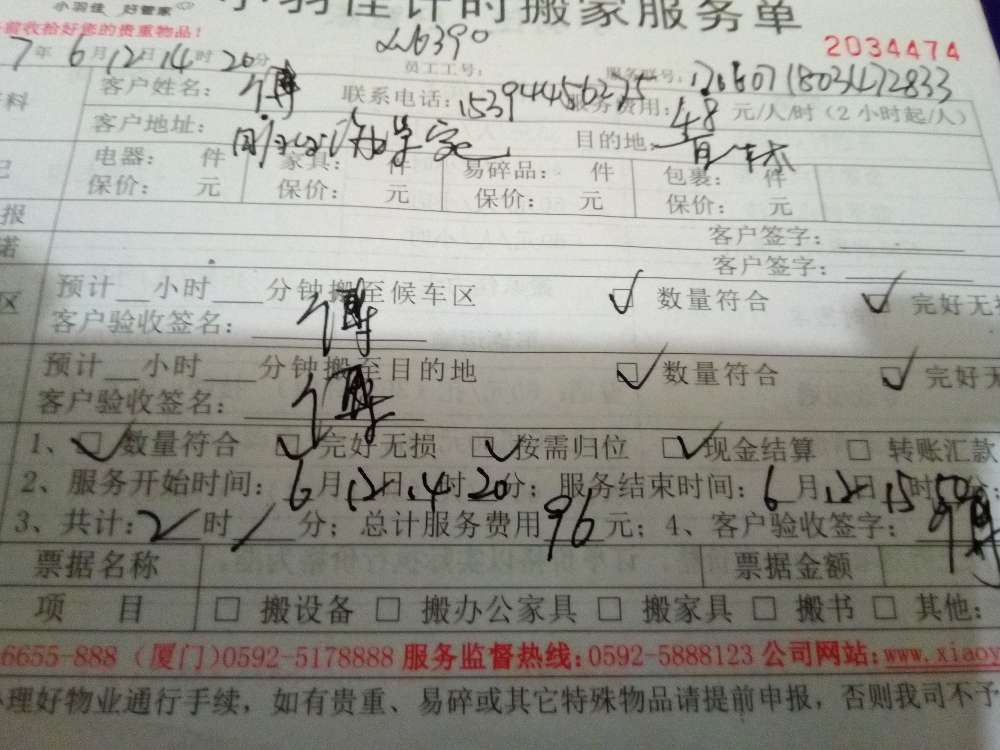 小羽佳 好管家
小羽佳计时搬家服务单
前收拾好您的贵重物品!
2034474
7年6月12日14时20分
员工工号: 26390
服务联号:
客户姓名: 傅 联系电话: 15394456275 服务费用: 48 元/人/时(2小时起/人)
客户地址: 目的地:
电器: 件 家具: 件 易碎品: 件 包裹: 件
保价: 元 保价: 元 保价: 元 保价: 元
客户签字:
客户签字:
预计__小时__分钟搬至候车区 ☑ 数量符合 ☑ 完好无
客户验收签名: 傅
预计__小时__分钟搬至目的地 ☑ 数量符合 ☑ 完好无
客户验收签名: 傅
1、☑ 数量符合 ☑ 完好无损 ☑ 按需归位 ☑ 现金结算 □ 转账汇款
2、服务开始时间: 6月12日14时20分; 服务结束时间: 6月12日15时50分;
3、共计: 2时/分; 总计服务费用96元; 4、客户验收签字: 傅
票据名称 票据金额
项 目 □ 搬设备 □ 搬办公家具 □ 搬家具 □ 搬书 □ 其他:
6655-888 (厦门)0592-5178888 服务监督热线:0592-5888123 公司网站:www.xiaoy
理好物业通行手续,如有贵重、易碎或其它特殊物品请提前申报,否则我司不予